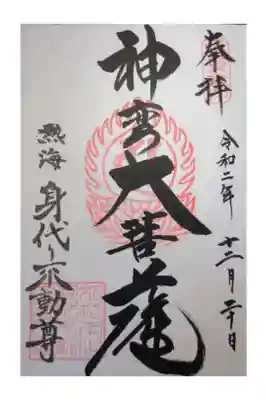 奉拝
令和二年 十二月二十日
神変大菩薩
熱海 身代り不動尊